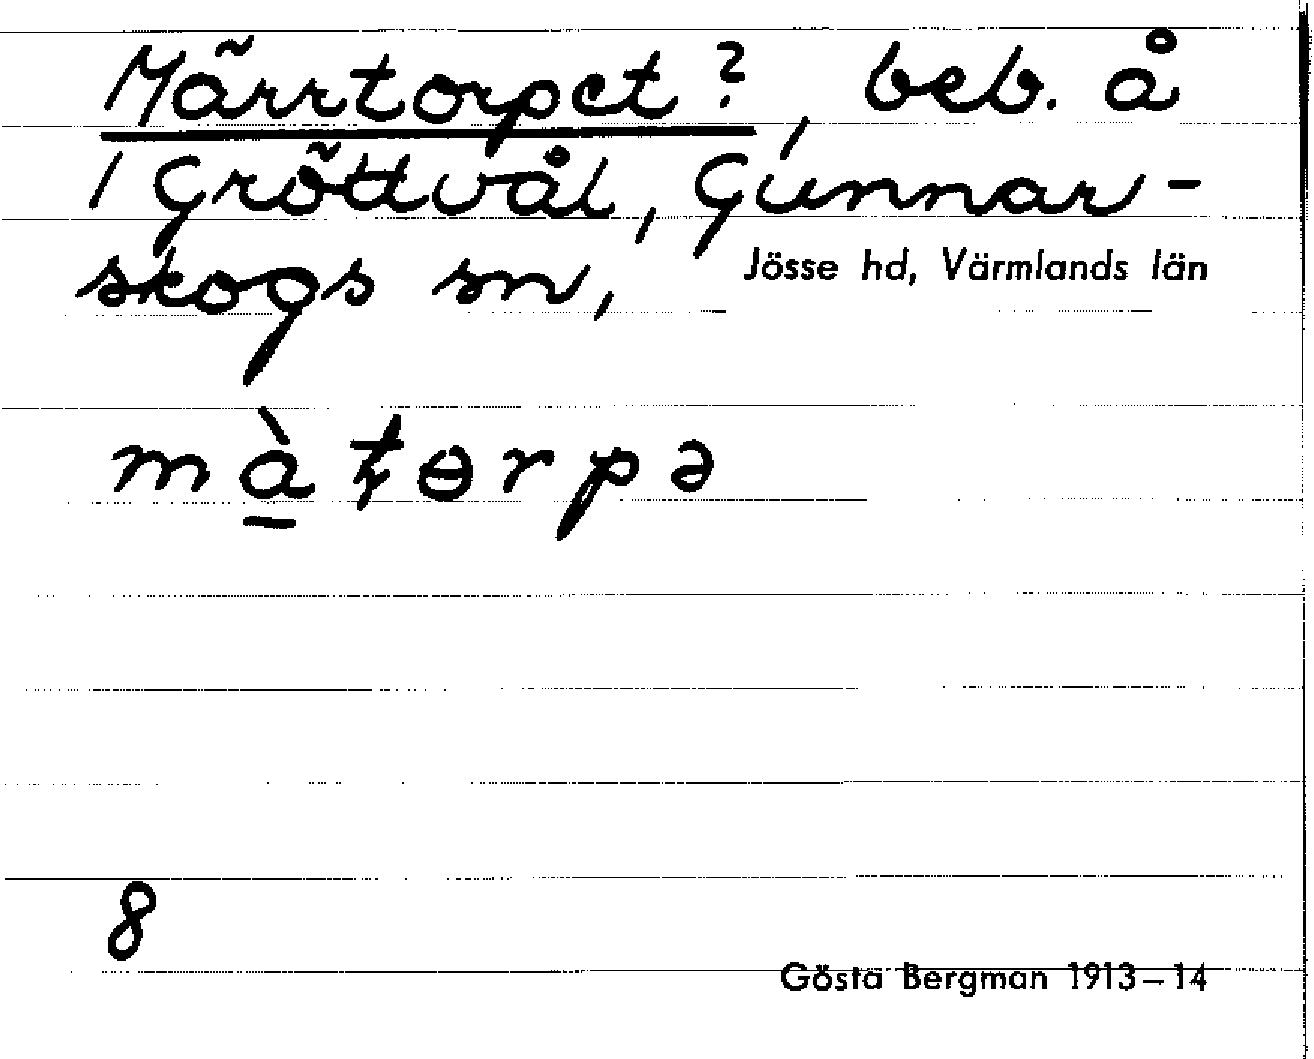 Märrtorpet?, beb. å
1 Gröttvål, Gunnar-
skogs sn, Jösse hd, Värmlands län
mà̠ʈɵrpə
8
Gösta Bergman 1913–14